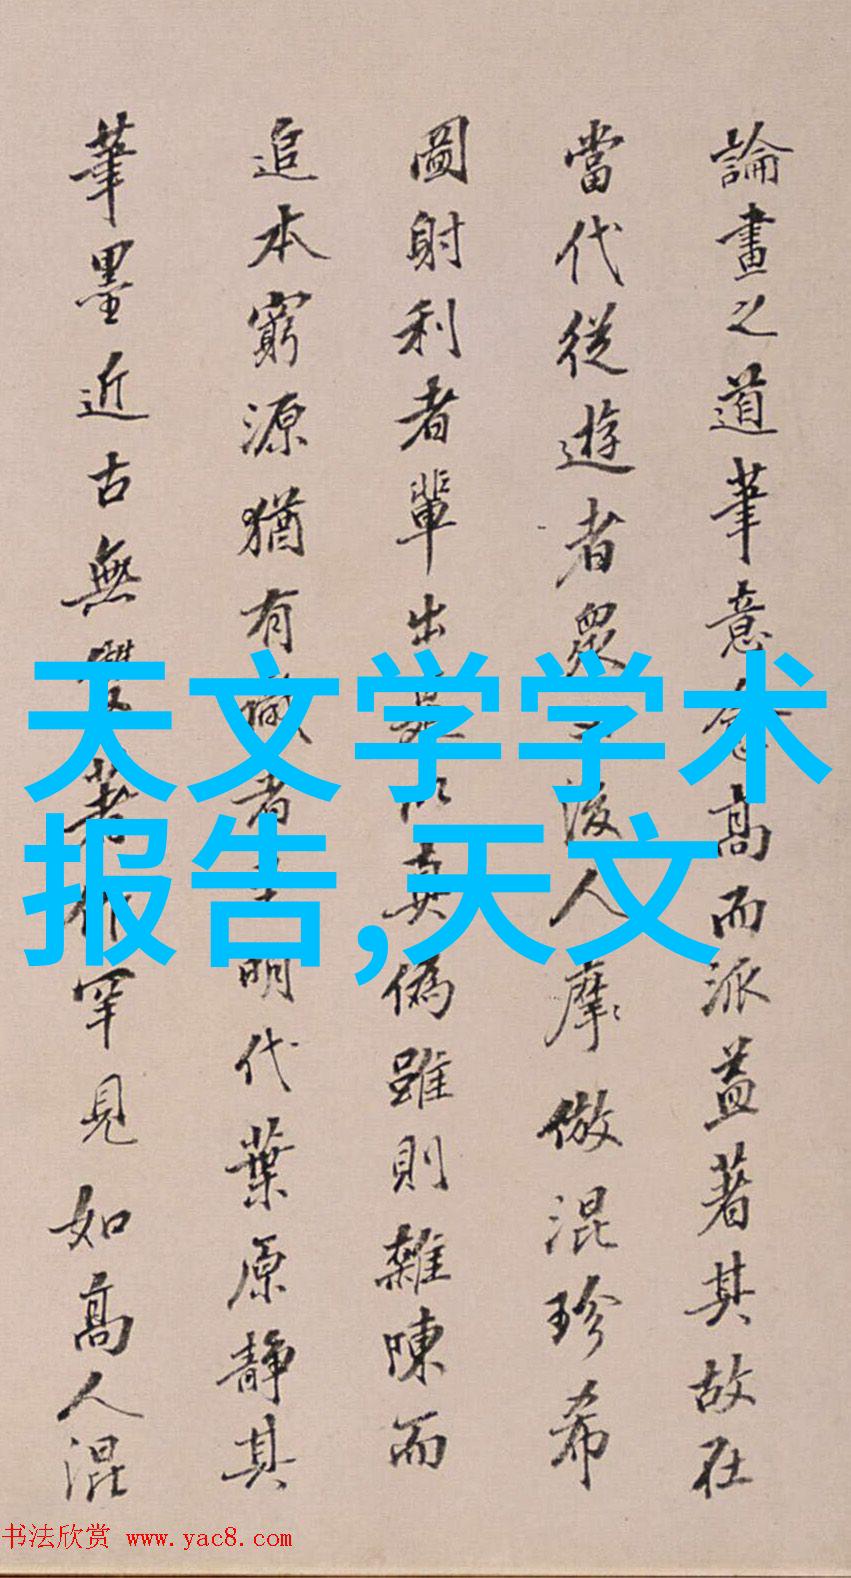 論畫之道筆意愈高而派益著其故在
當代從遊者眾後人摩倣混珍希
圖射利者輩出是以真偽雖則雜陳而
追本窮源猶有識者明代葉原静其
筆墨近古無雙著作罕見如高人混
天文学学术
报告,天文
书法欣赏 www.yac8.com